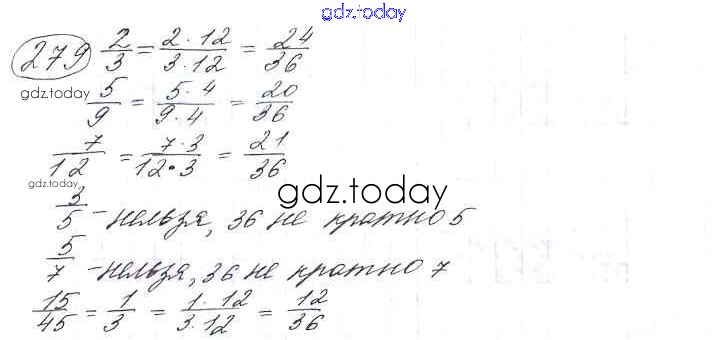 gdz.today
279 2/3 = 2·12/3·12 = 24/36
gdz.today
5/9 = 5·4/9·4 = 20/36
7/12 = 7·3/12·3 = 21/36
gdz.today
gdz.today
3/5 - нельзя, 36 не кратно 5
5/7 - нельзя, 36 не кратно 7
15/45 = 1/3 = 1·12/3·12 = 12/36